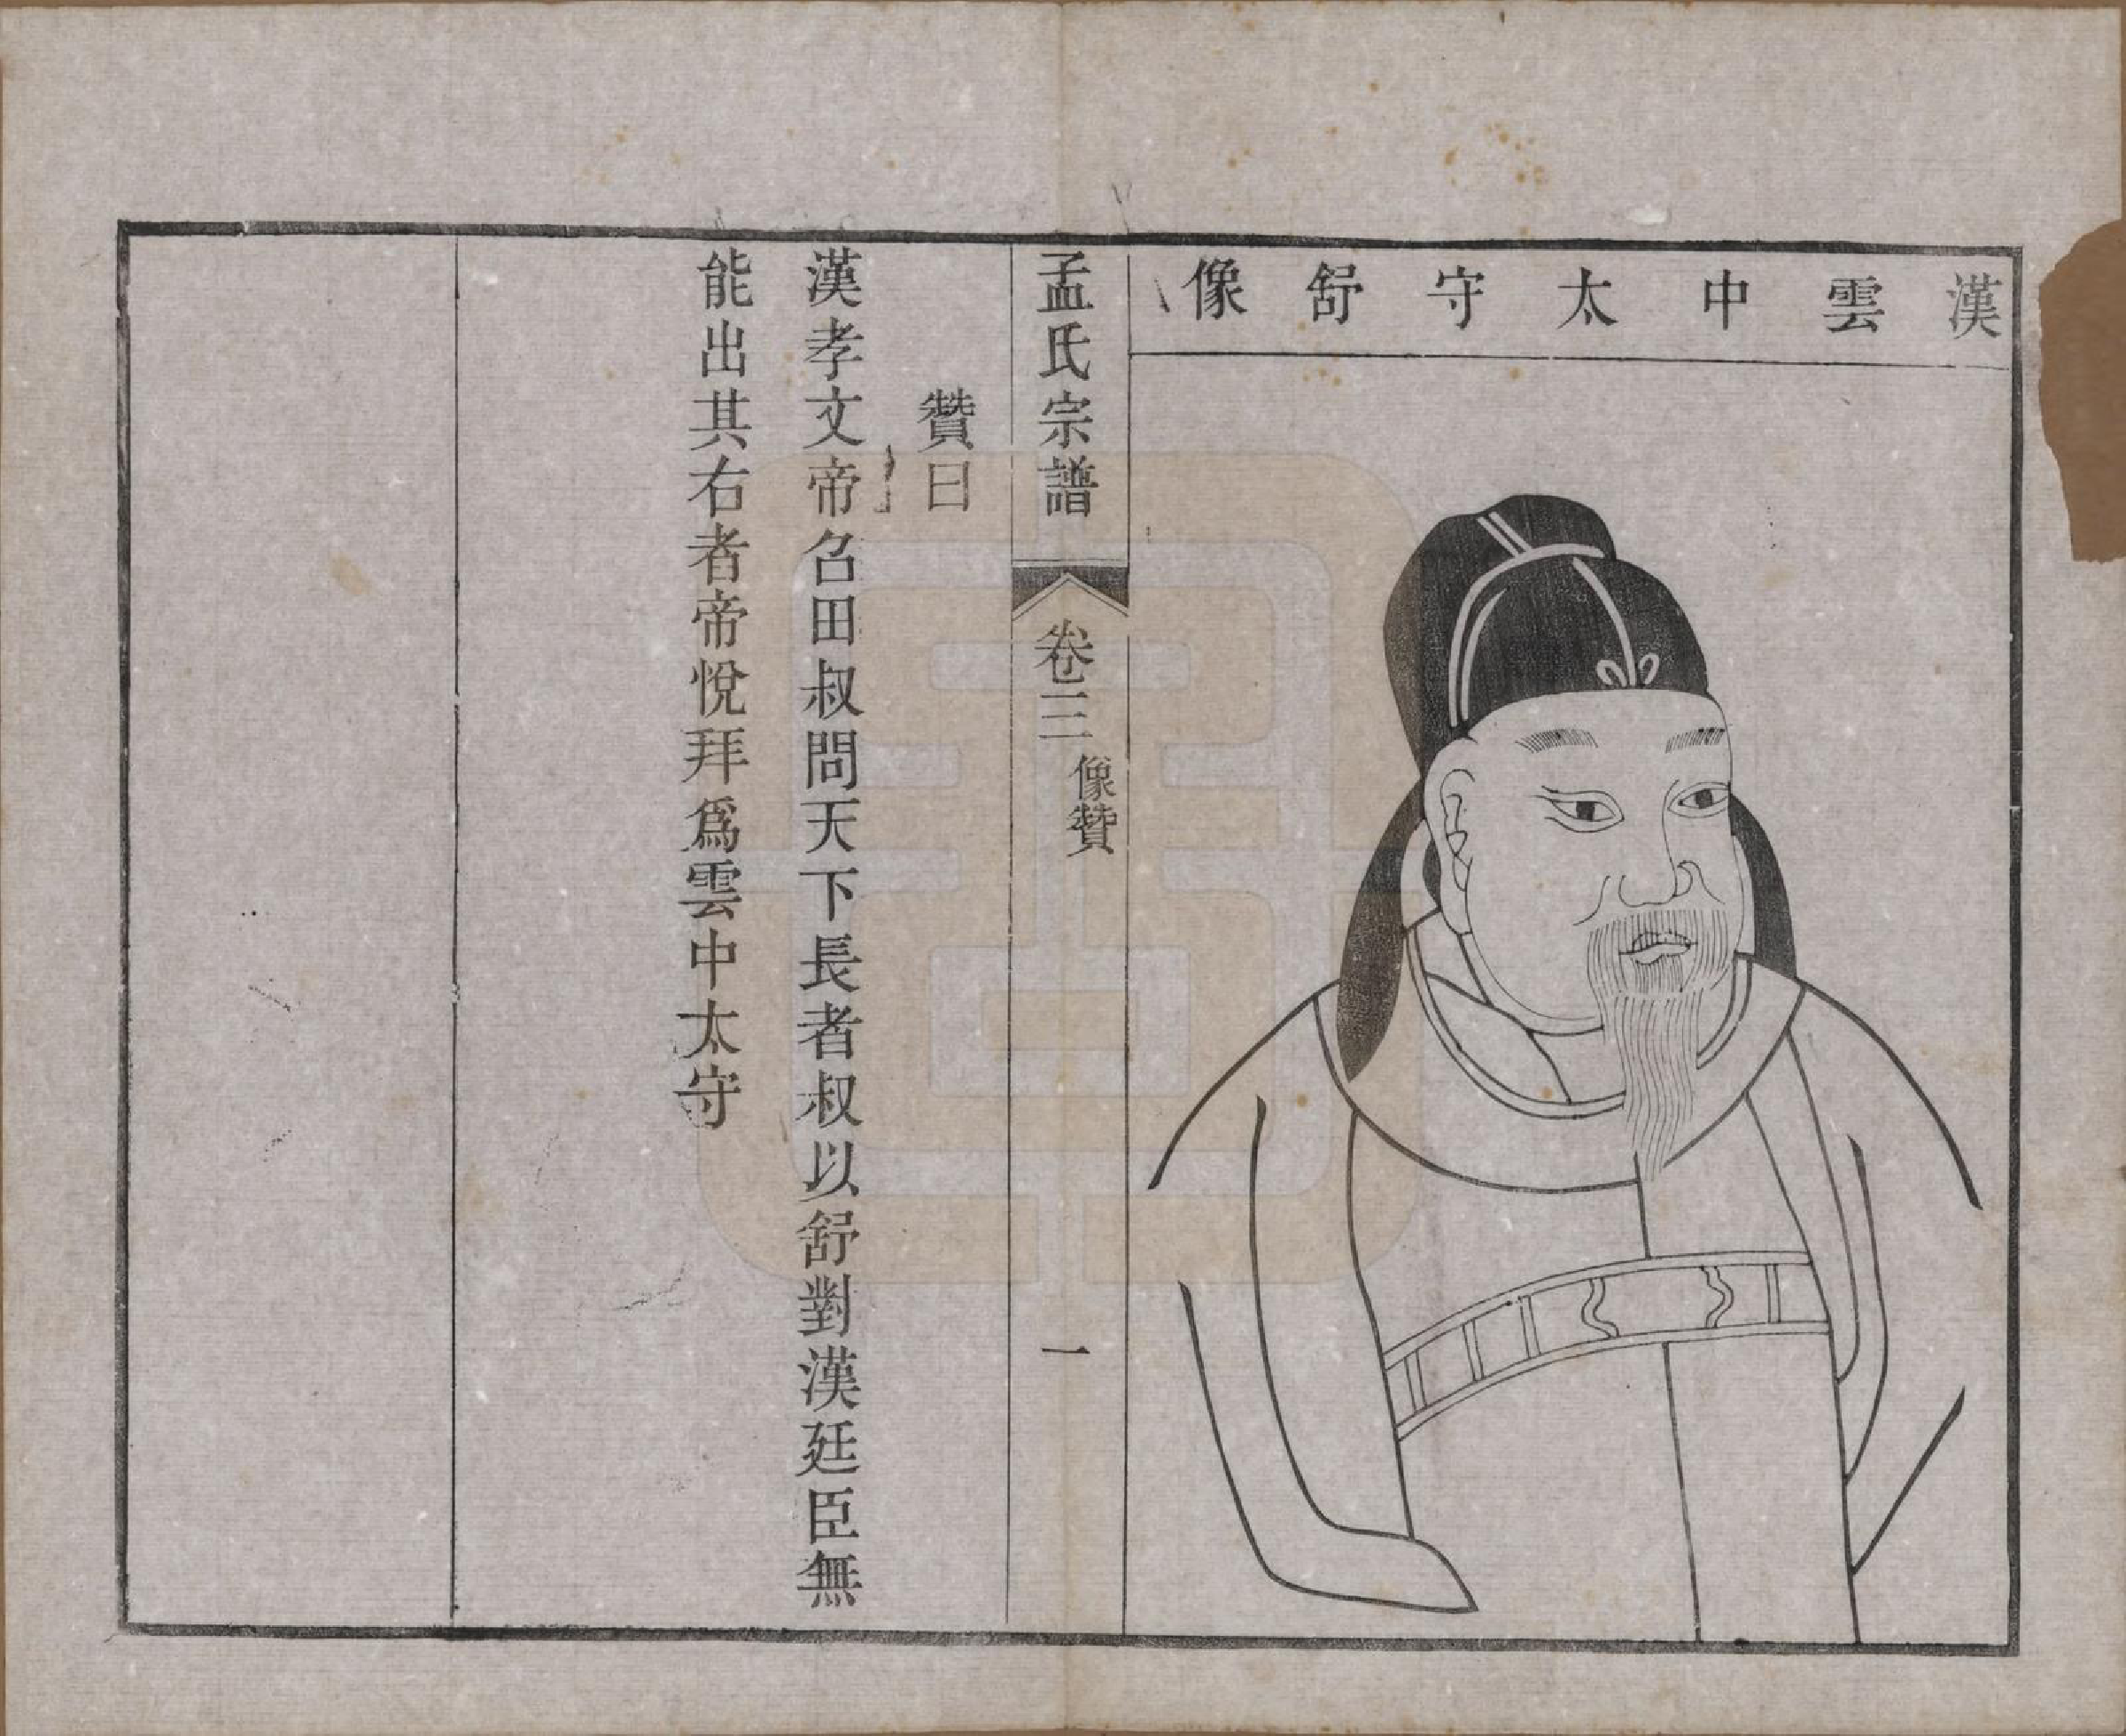 漢雲中太守舒像
孟氏宗譜 卷三 像贊 一
贊曰
漢孝文帝召田叔問天下長者叔以舒對漢廷臣無
能出其右者帝悅拜爲雲中太守